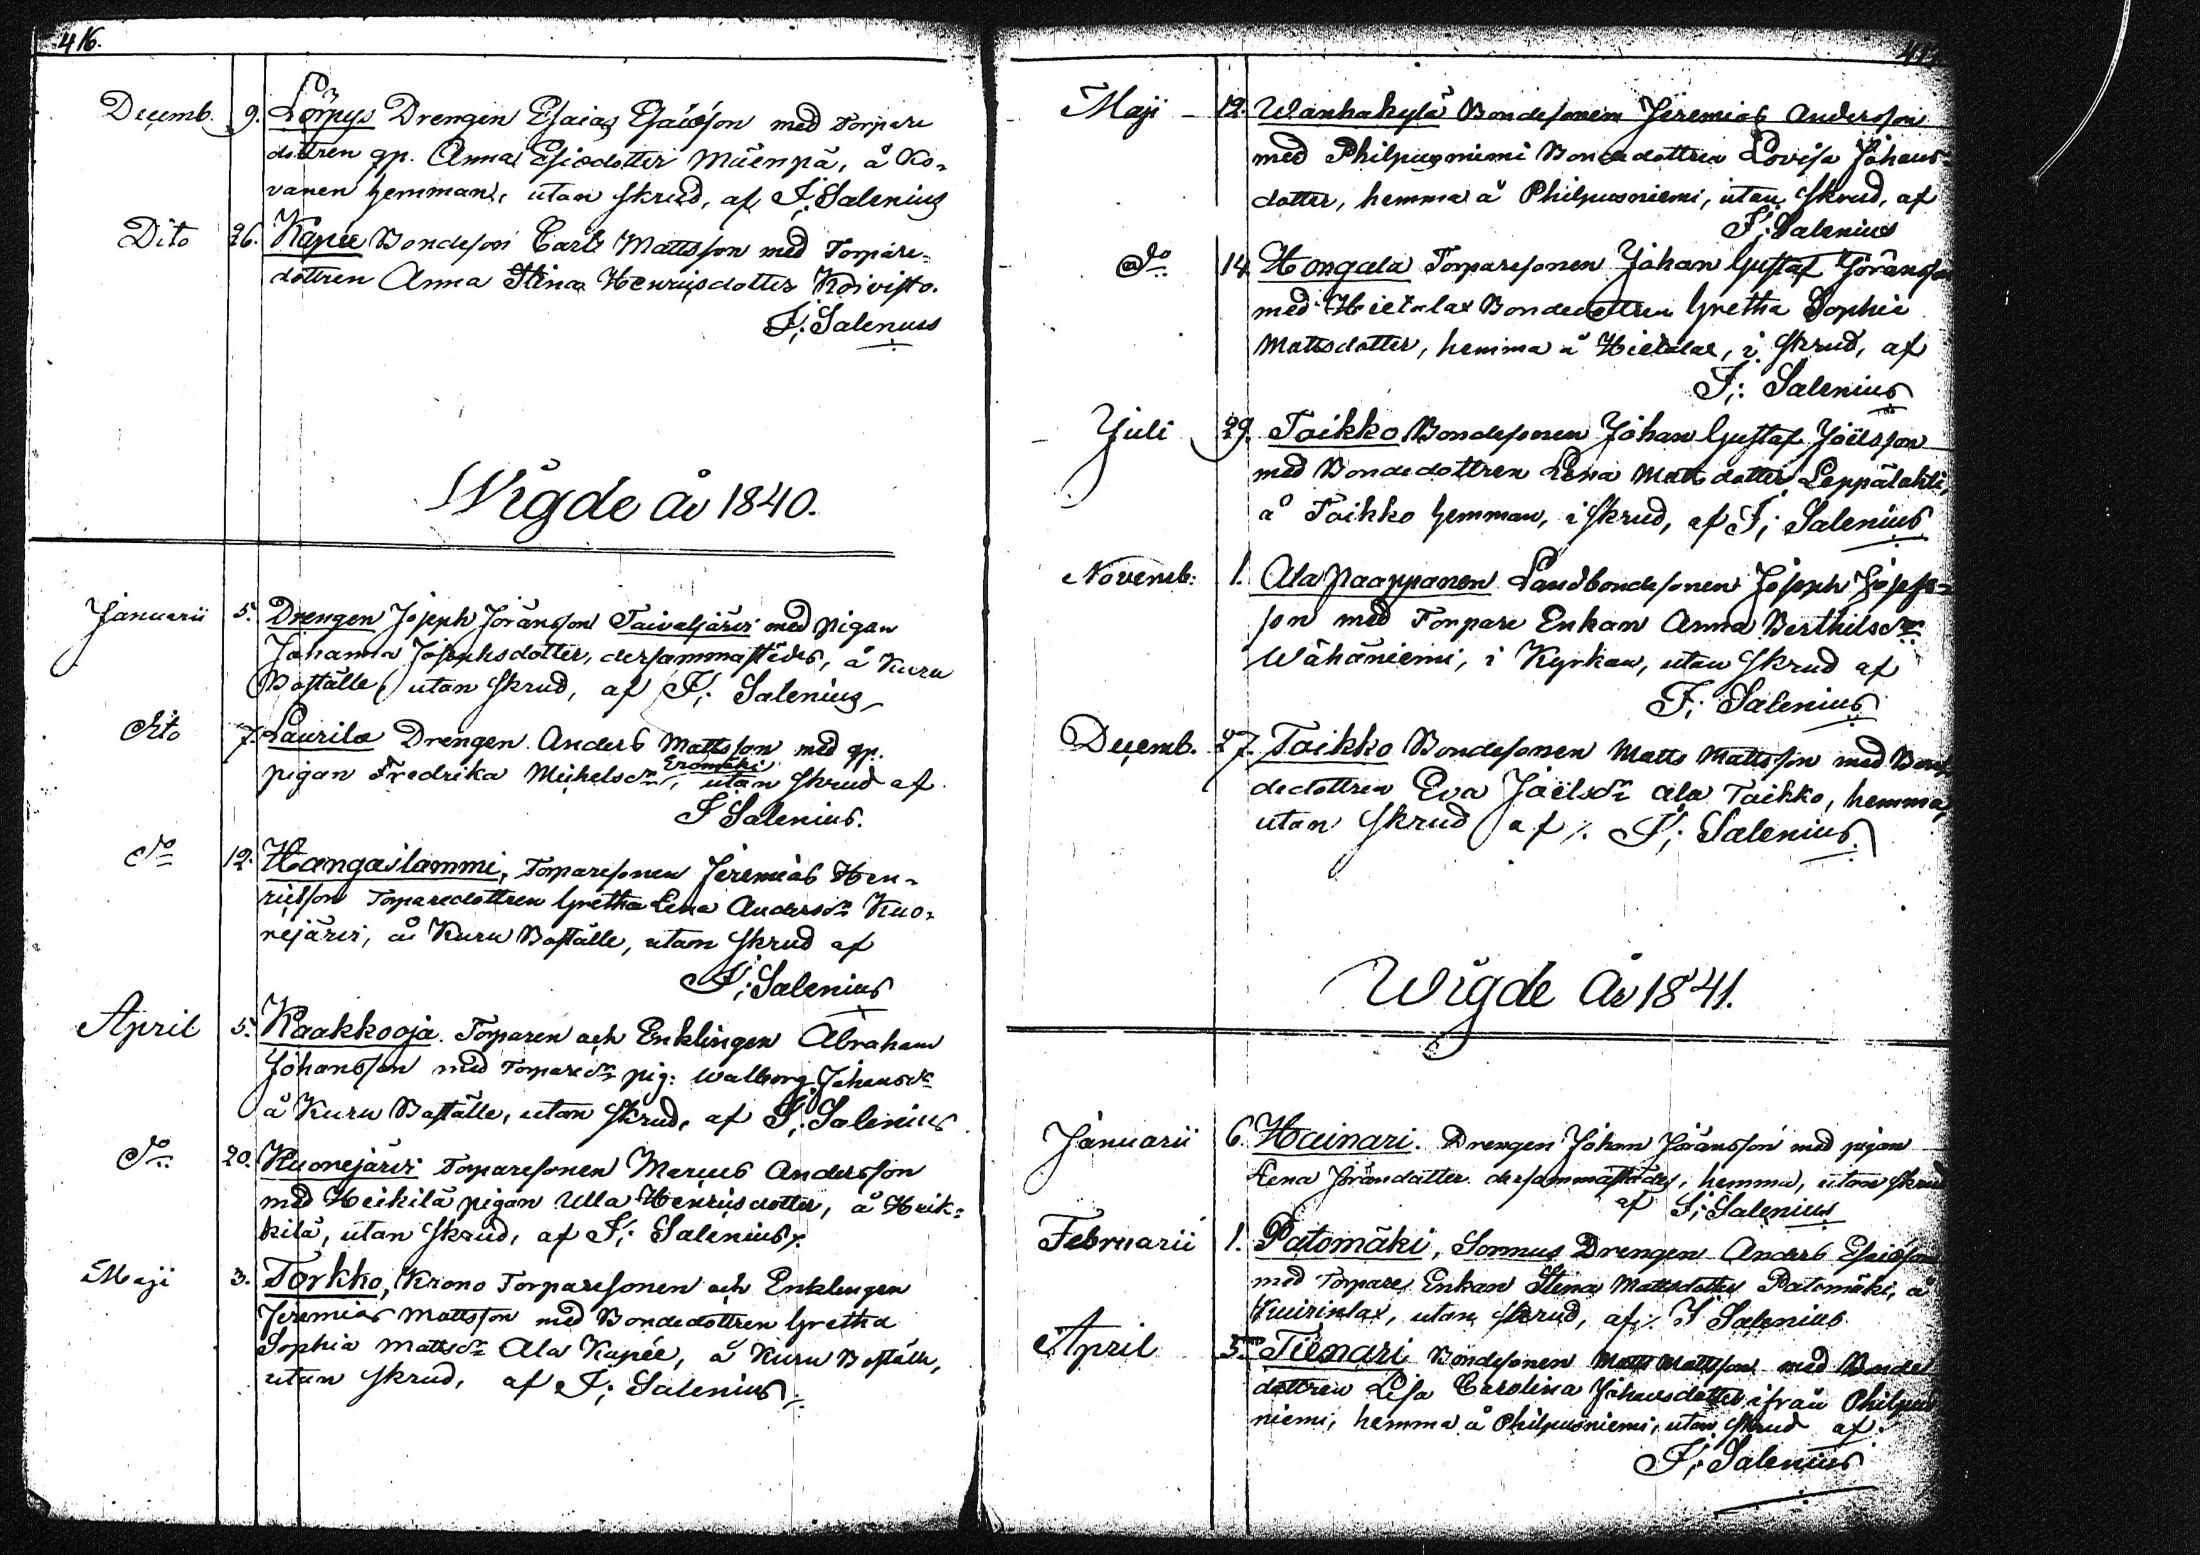 416.
Decemb. 9. Lörpys Drengen Esaias Esaiasson med Torpare
dottren qp. Anna Esiasdotter Mäenpä, å Ko-
vanen hemman, utan skrud, af F; Salenius
Dito 26. Kapee Bondeson Carl Mattsson med Torpare-
dottren Anna Stina Henricsdotter Koivisto.
F; Salenius
Wigde år 1840.
Januarii 5. Drengen Joseph Jöransson Taivaljärvi med pigan
Johanna Josephsdotter, dersammastädes, å Kuru
Boställe, utan skrud, af F; Salenius
Dito 7. Laurila Drengen Anders Mattsson med qp.
Eromäki
pigan Fredrika Michelsdr, utan skrud af
F Salenius.
do 12. Hangaslammi, Torparesonen Jeremias Hen-
ricsson Torparedottren Gretha Lena Andersdr Kuo-
rejärvi, å Kuru Boställe, utan skrud af
F; Salenius
April 5. Kaakkooja. Torparen och Enklingen Abraham
Johansson med Torparedr pig: Walborg Johansdr
å Kuru Boställe, utan skrud, af F; Salenius
do 20. Kuorejärvi Torparesonen Marcus Andersson
med Heikilä pigan Ulla Henricsdotter, å Heik-
kilä, utan skrud, af F; Salenius
Maji 3. Torkko, Krono Torparesonen och Enklingen
Jeremias Mattsson med Bondedottren Gretha
Sophia Mattsdr Ala Kapée, å Kuru Boställe,
utan skrud, af F; Salenius
Maji 12. Wanhakylä Bondesonen Jeremias Andersson
med Philpusniemi Bondedottren Lovisa Johans-
dotter, hemma å Philpusniemi, utan skrud, af
F; Salenius
do 14 Hongala Torparesonen Johan Gustaf Jöransson
med Hietalax Bondedottren Gretha Sophia
Mattsdotter, hemma å Hietalax, i skrud, af
F; Salenius
Juli 29. Toikko Bondesonen Johan Gustaf Joëlsson
med Bondedottren Lena Mattsdotter Leppälahti,
å Toikko hemman, i skrud, af F; Salenius
Novemb: 1. Ala Paappanen Landbondesonen Joseph Josephs-
son med Torpare Enkan Anna Berthilsdr
Wähäniemi, i Kyrkan, utan skrud af
F; Salenius
Decemb. 27. Toikko Bondesonen Matts Mattsson med Bon
dedottren Eva Joëlsdr Ala Toikko, hemma,
utan skrud af F; Salenius
Wigde År 1841.
Januarii 6. Hainari. Drengen Johan Jöransson med pigan
Lena Jörandotter dersammastädes, hemma, utan skrud
af F; Salenius
Februarii 1. Patomäki, Drengen Anders Esaiasson
med Torpare Enkan Stina Mattsdotter Patomäki, å
Kuirinlax, utan skrud, af F Salenius
April 5. Tienari Bondesonen Matts Mattsson med Bonde
dottren Lisa Carolina Johansdotter ifrån Philpus
niemi, hemma å Philpusniemi, utan skrud af
F; Salenius